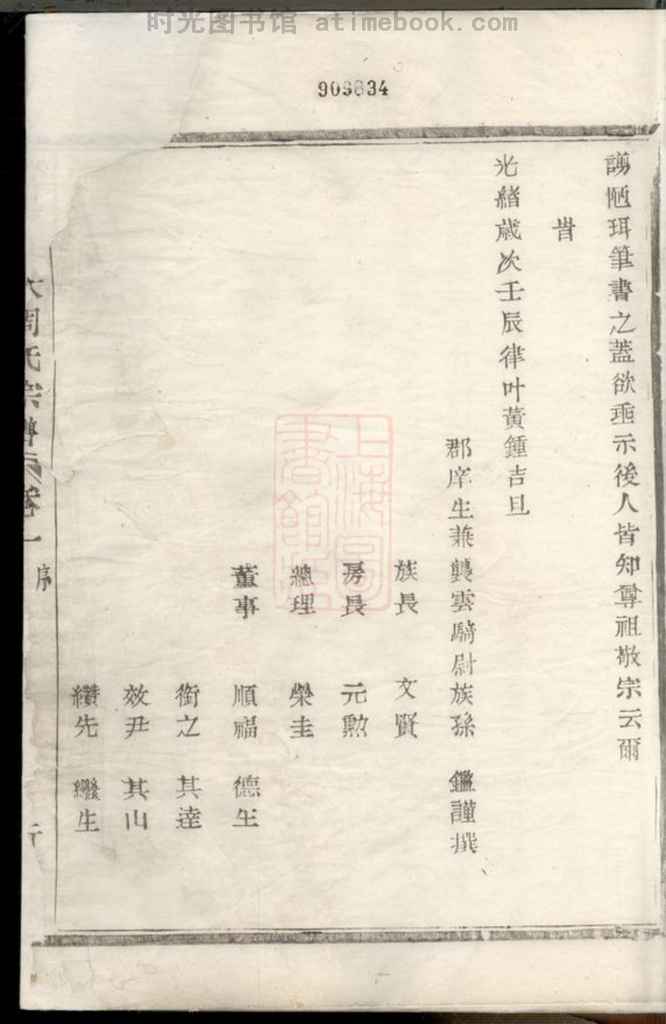 时光图书馆 atimebook.com
903634
謭陋珥筆書之蓋欲垂示後人皆知尊祖敬宗云爾
旹
光緒歲次壬辰律叶黃鍾吉旦
郡庠生兼襲雲騎尉族孫 鑑謹撰
族長 文賢
房長 元勲
總理 榮圭
董事 順福 德生
銜之 其達
效尹 其山
纘先 繼生
周氏宗譜 卷一 序
上海圖書館藏